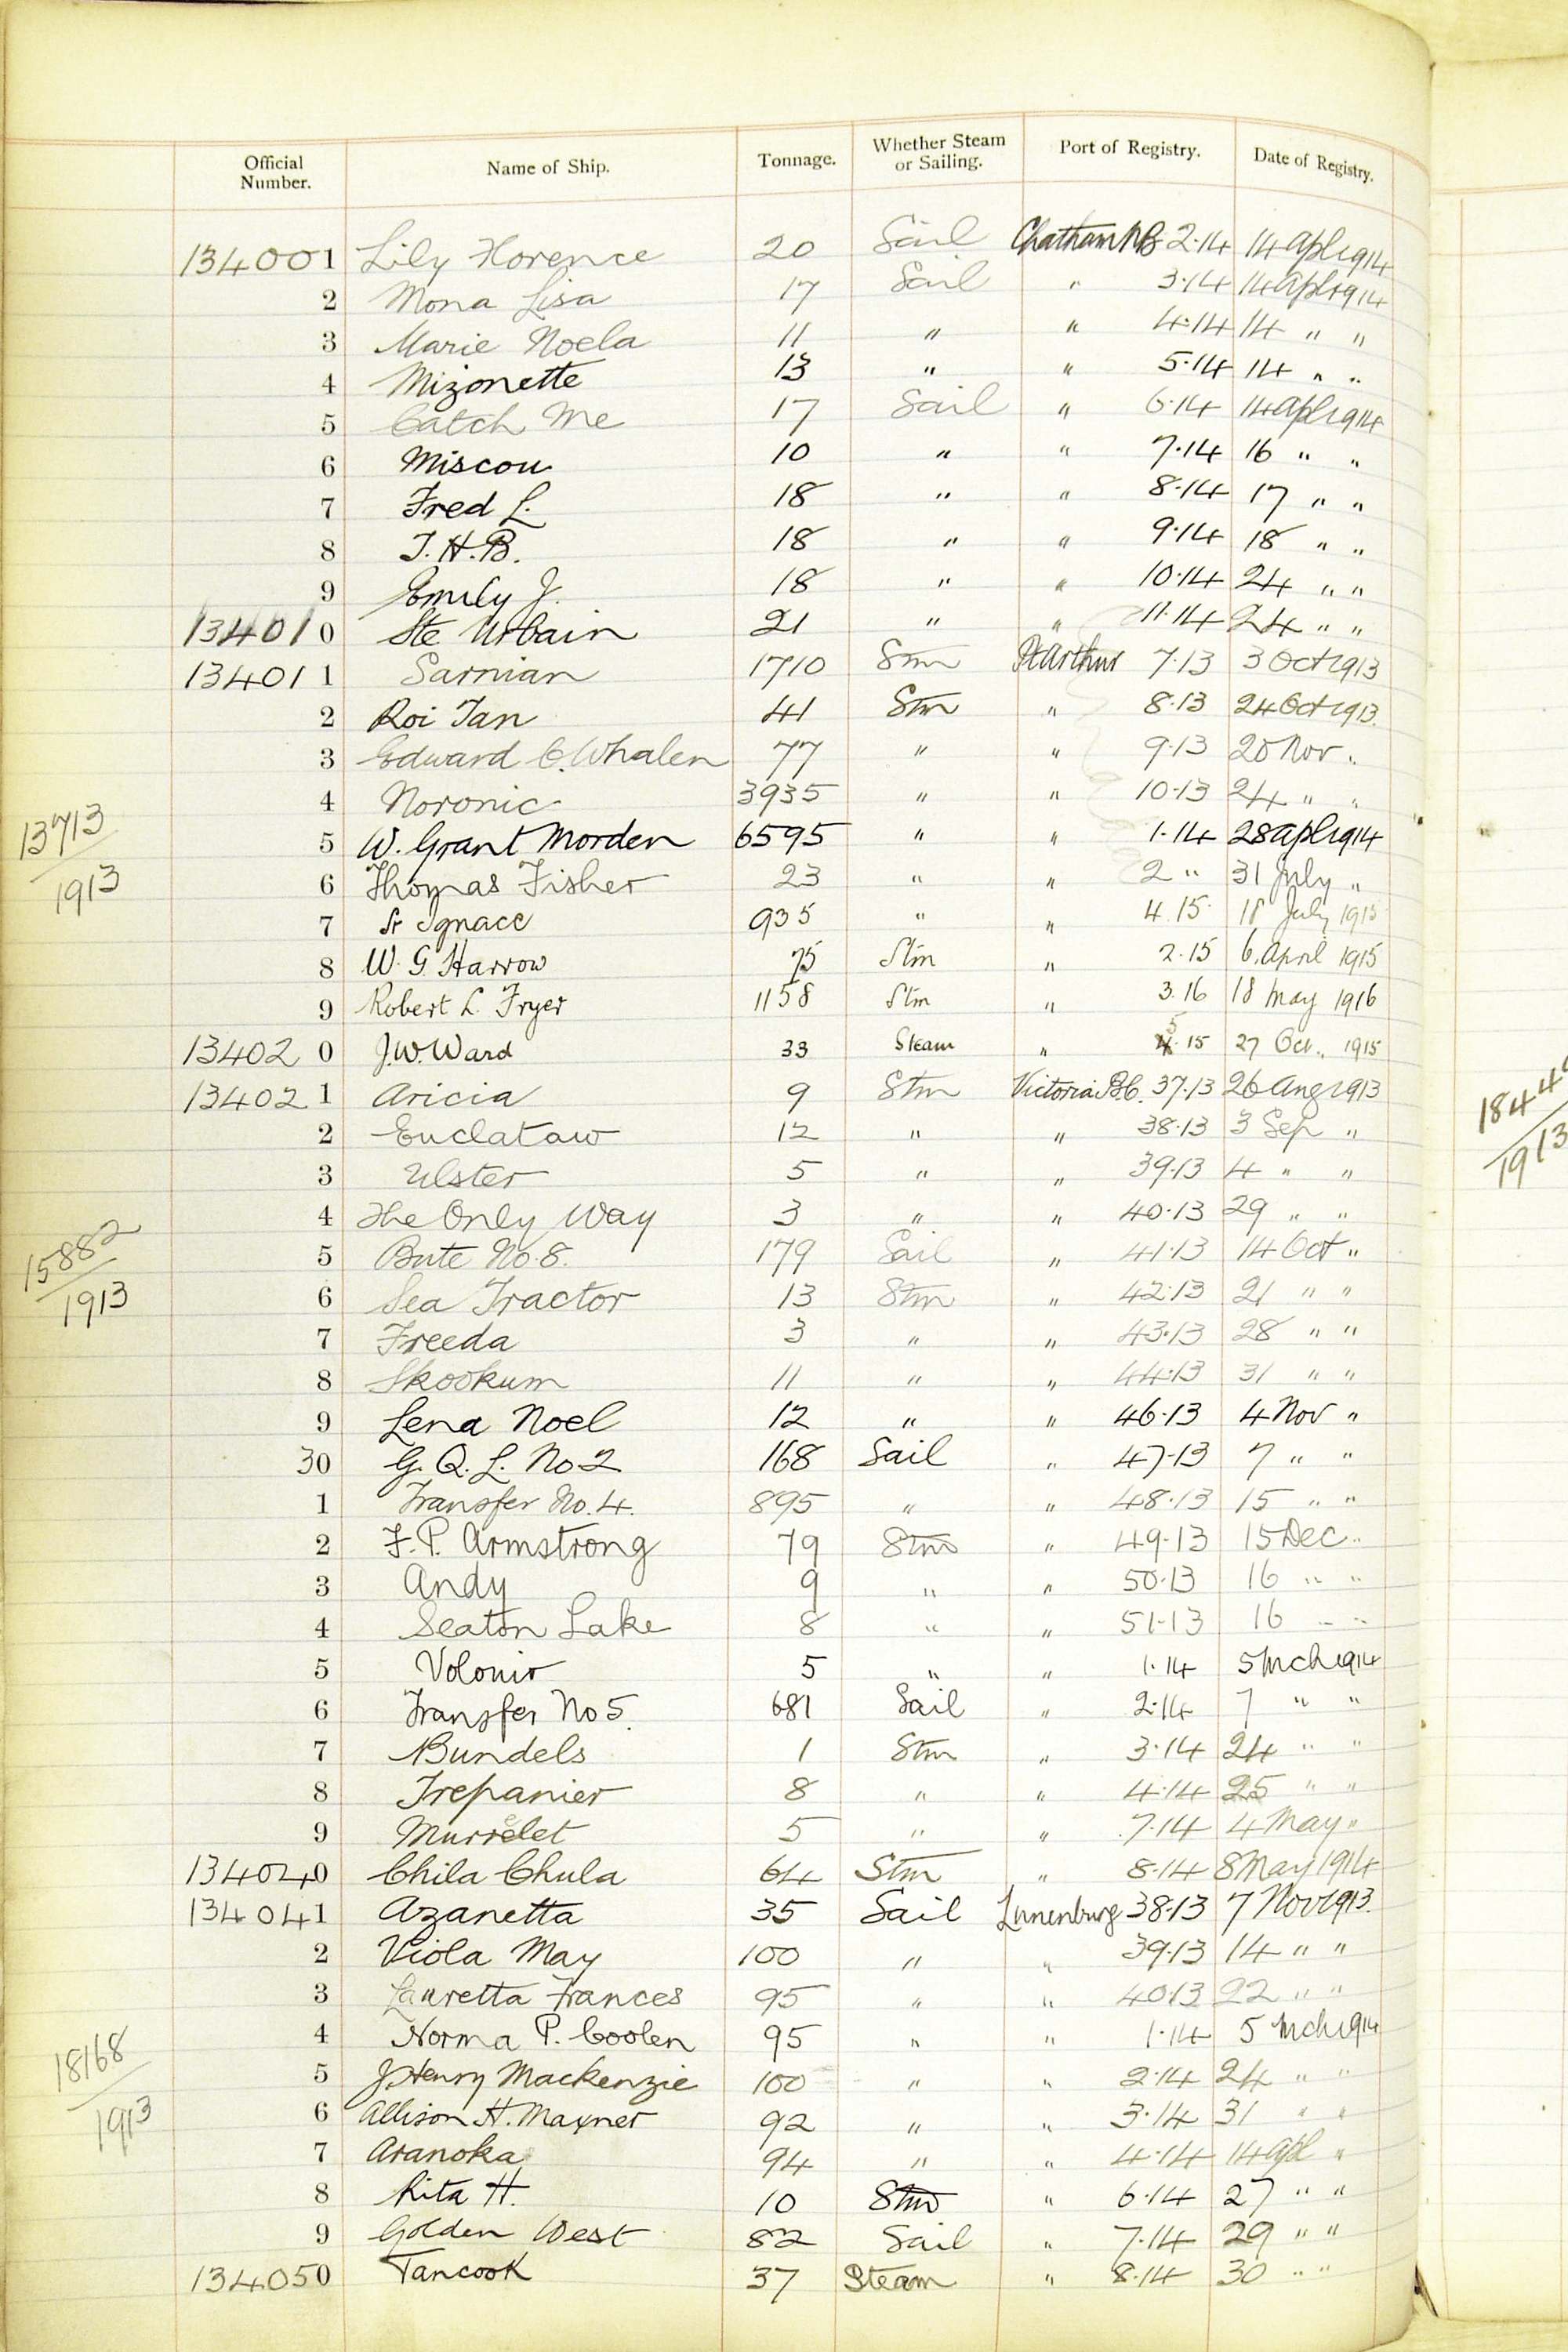 Official Number. Name of Ship. Tonnage. Whether Steam or Sailing. Port of Registry. Date of Registry.
134001 Lily Florence 20 Sail Chatham NB 2·14 14 Apl 1914
2 Mona Lisa 17 Sail " 3·14 14 Apl 1914
3 Marie Noela 11 " " 4·14 14 " "
4 Mizonette 13 " " 5·14 14 " "
5 Catch Me 17 Sail " 6·14 14 Apl 1914
6 Miscou 10 " " 7·14 16 " "
7 Fred L. 18 " " 8·14 17 " "
8 T.H.B. 18 " " 9·14 18 " "
9 Emily J. 18 " " 10·14 24 " "
134010 Ste Urbain 21 " " 11·14 24 " "
134011 Sarnian 1710 Stm Pt Arthur 7·13 3 Oct 1913
2 Roi Tan 41 Stm " 8·13 24 Oct 1913
3 Edward C. Whalen 77 " " 9·13 20 Nov "
4 Noronic 3935 " " 10·13 24 " "
13713
1913
5 W. Grant Morden 6595 " " 1·14 28 Apl 1914
6 Thomas Fisher 23 " " 2 " 31 July "
7 St Ignace 935 " " 4.15 18 July 1915
8 W. G. Harrow 75 Stm " 2.15 6. April 1915
9 Robert L. Fryer 1158 Stm " 3.16 18 May 1916
134020 J.W. Ward 33 Steam " 5.15 27 Oct. 1915
134021 Aricia 9 Stm Victoria B.C. 37·13 26 Aug 1913
2 Euclataw 12 " " 38·13 3 Sep "
3 Ulster 5 " " 39·13 4 " "
4 The Only Way 3 " " 40·13 29 " "
5 Bute No. 8. 179 Sail " 41·13 14 Oct "
15882
1913
6 Sea Tractor 13 Stm " 42·13 21 " "
7 Freeda 3 " " 43·13 28 " "
8 Skookum 11 " " 44·13 31 " "
9 Lena Noel 12 " " 46·13 4 Nov "
30 G. Q. L. No 2 168 Sail " 47·13 7 " "
1 Transfer No. 4. 895 " " 48·13 15 " "
2 F. P. Armstrong 79 Stm " 49·13 15 Dec "
3 Andy 9 " " 50·13 16 " "
4 Seaton Lake 8 " " 51·13 16 " "
5 5 " " 1·14 5 Mch 1914
6 Transfer No 5. 681 Sail " 2·14 7 " "
7 Bundels 1 Stm " 3·14 24 " "
8 Trepanier 8 " " 4·14 25 " "
9 Murrelet 5 " " 7·14 4 May "
134040 Chila Chula 64 Stm " 8·14 8 May 1914
134041 Azanetta 35 Sail Lunenburg 38·13 7 Nov 1913
2 Viola May 100 " " 39·13 14 " "
3 Lauretta Frances 95 " " 40·13 22 " "
4 Norma P. Coolen 95 " " 1·14 5 Mch 1914
18168
1913
5 J. Henry Mackenzie 100 " " 2·14 24 " "
6 Allison H. Maxner 92 " " 3·14 31 " "
7 Aranoka 94 " " 4·14 14 Apl "
8 Rita H. 10 Stm " 6·14 27 " "
9 Golden West 82 Sail " 7·14 29 " "
134050 Tancook 37 Steam " 8·14 30 " "